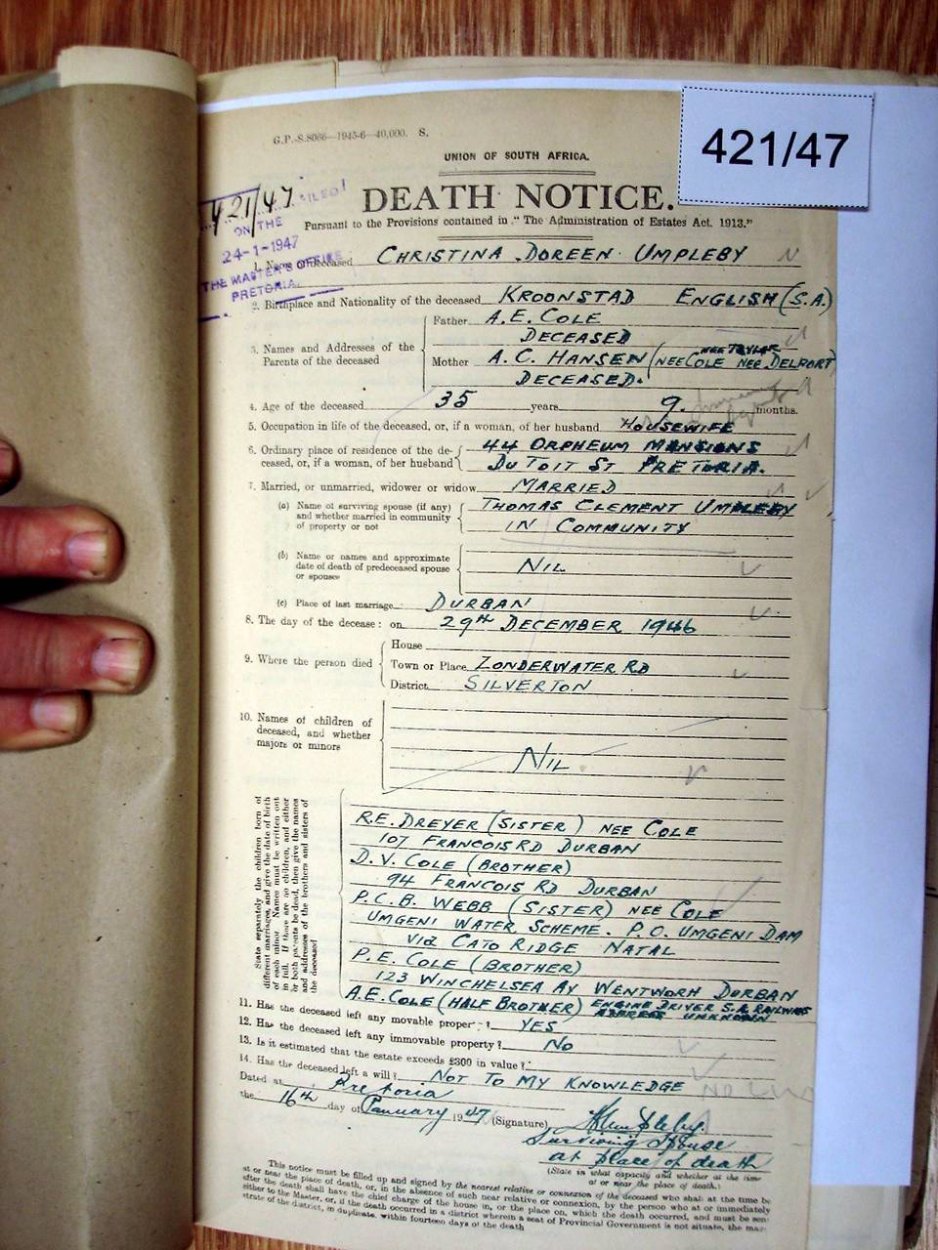 421/47
G.P.-S.8066—1945-6—40,000. S.
UNION OF SOUTH AFRICA.
DEATH NOTICE.
Pursuant to the Provisions contained in "The Administration of Estates Act. 1913."
421/47
FILED!
ON THE
24-1-1947
THE MASTER'S OFFICE
PRETORIA.
1. Name of Deceased CHRISTINA DOREEN UMPLEBY
2. Birthplace and Nationality of the deceased KROONSTAD ENGLISH (S.A.)
3. Names and Addresses of the Parents of the deceased
Father A.E. COLE
DECEASED
Mother A.C. HANSEN (NEE COLE NEE TAYLOR NEE DELPORT)
DECEASED.
4. Age of the deceased 35 years 9. months.
5. Occupation in life of the deceased, or, if a woman, of her husband HOUSEWIFE
6. Ordinary place of residence of the de- 44 ORPHEUM MANSIONS
ceased, or, if a woman, of her husband DU TOIT ST PRETORIA.
7. Married, or unmarried, widower or widow MARRIED
(a) Name of surviving spouse (if any) THOMAS CLEMENT UMPLEBY
and whether married in community IN COMMUNITY
of property or not
(b) Name or names and approximate
date of death of predeceased spouse NIL
or spouses
(c) Place of last marriage DURBAN
8. The day of the decease: on 29th DECEMBER 1946
9. Where the person died
House
Town or Place ZONDERWATER RD
District SILVERTON
10. Names of children of
deceased, and whether
majors or minors
NIL.
State separately the children born of
different marriages, and give the date of birth
of each minor Names must be written out
in full. If there are no children, and either
or both parents be dead, then give the names
and addresses of the brothers and sisters of
the deceased
R.E. DREYER (SISTER) NEE COLE
107 FRANCOIS RD DURBAN
D.V. COLE (BROTHER)
94 FRANCOIS RD DURBAN
P.C.B. WEBB (SISTER) NEE COLE
UMGENI WATER SCHEME. P.O. UMGENI DAM
VIA CATO RIDGE NATAL
P.E. COLE (BROTHER)
123 WINCHELSEA AV WENTWORH DURBAN
A.E. COLE (HALF BROTHER) ENGINE DRIVER S.A. RAILWAYS
ADDRESS UNKNOWN
11. Has the deceased left any movable proper YES
12. Has the deceased left any immovable property? NO
13. Is it estimated that the estate exceeds £300 in value?
14. Has the deceased left a will? NOT TO MY KNOWLEDGE
Dated at Pretoria
the 16th day of January 1947 (Signature)
Surviving Spouse
at place of death
(State in what capacity and whether at the time
at or near the place of death.)
This notice must be filled up and signed by the nearest relative or connexion of the deceased who shall at the time be
at or near the place of death, or, in the absence of such near relative or connexion, by the person who at or immediately
after the death shall have the chief charge of the house in, or the place on, which the death occurred, and must be sen
either to the Master, or, if the death occurred in a district wherein a seat of Provincial Government is not situate, the ma
strate of the district, in duplicate, within fourteen days of the death